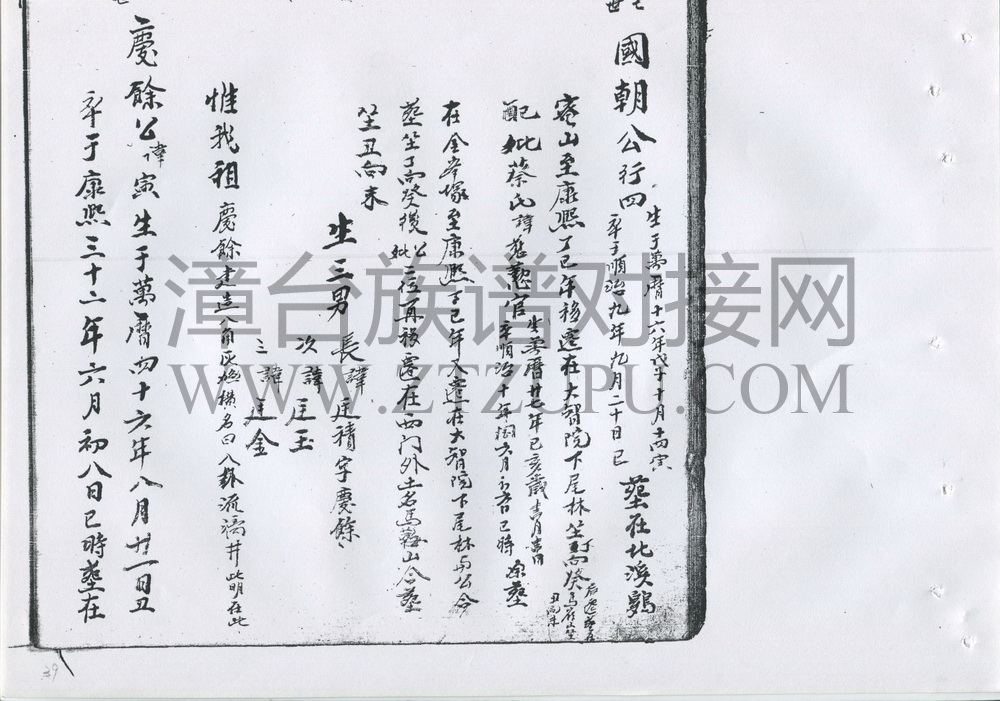 七世
國朝公行四
生于萬曆十六年戊子十月十四寅
卒于順治九年九月二十日巳
葬在北溪鶚
蓭山至康熙丁巳年移遷在大智院下尾林坐丁向癸
后遷葬在馬鞍山坐丑向未
配妣蔡氏諱慈懿官
生萬曆廿七年己亥歲
卒順治十年閏六月初六日巳時
原葬
在金峯塚至康熙丁巳年又遷在大智院下尾林与公合
葬坐丁向癸後公妣二位再移遷在西门外土名馬鞍山合葬
坐丑向未
生三男
長諱廷積字慶餘
次諱廷玉
三諱廷金
惟我祖慶餘建造八角灰 橫名曰八卦流 井此明在此
慶餘公諱寅生于萬曆四十六年八月廿一日丑
卒于康熙三十二年六月初八日巳時葬在
39
漳台族谱对接网
WWW.ZTZUPU.COM